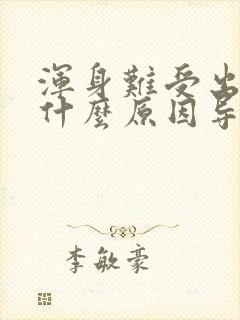 渾身難受出
什麼原因导
李敏豪